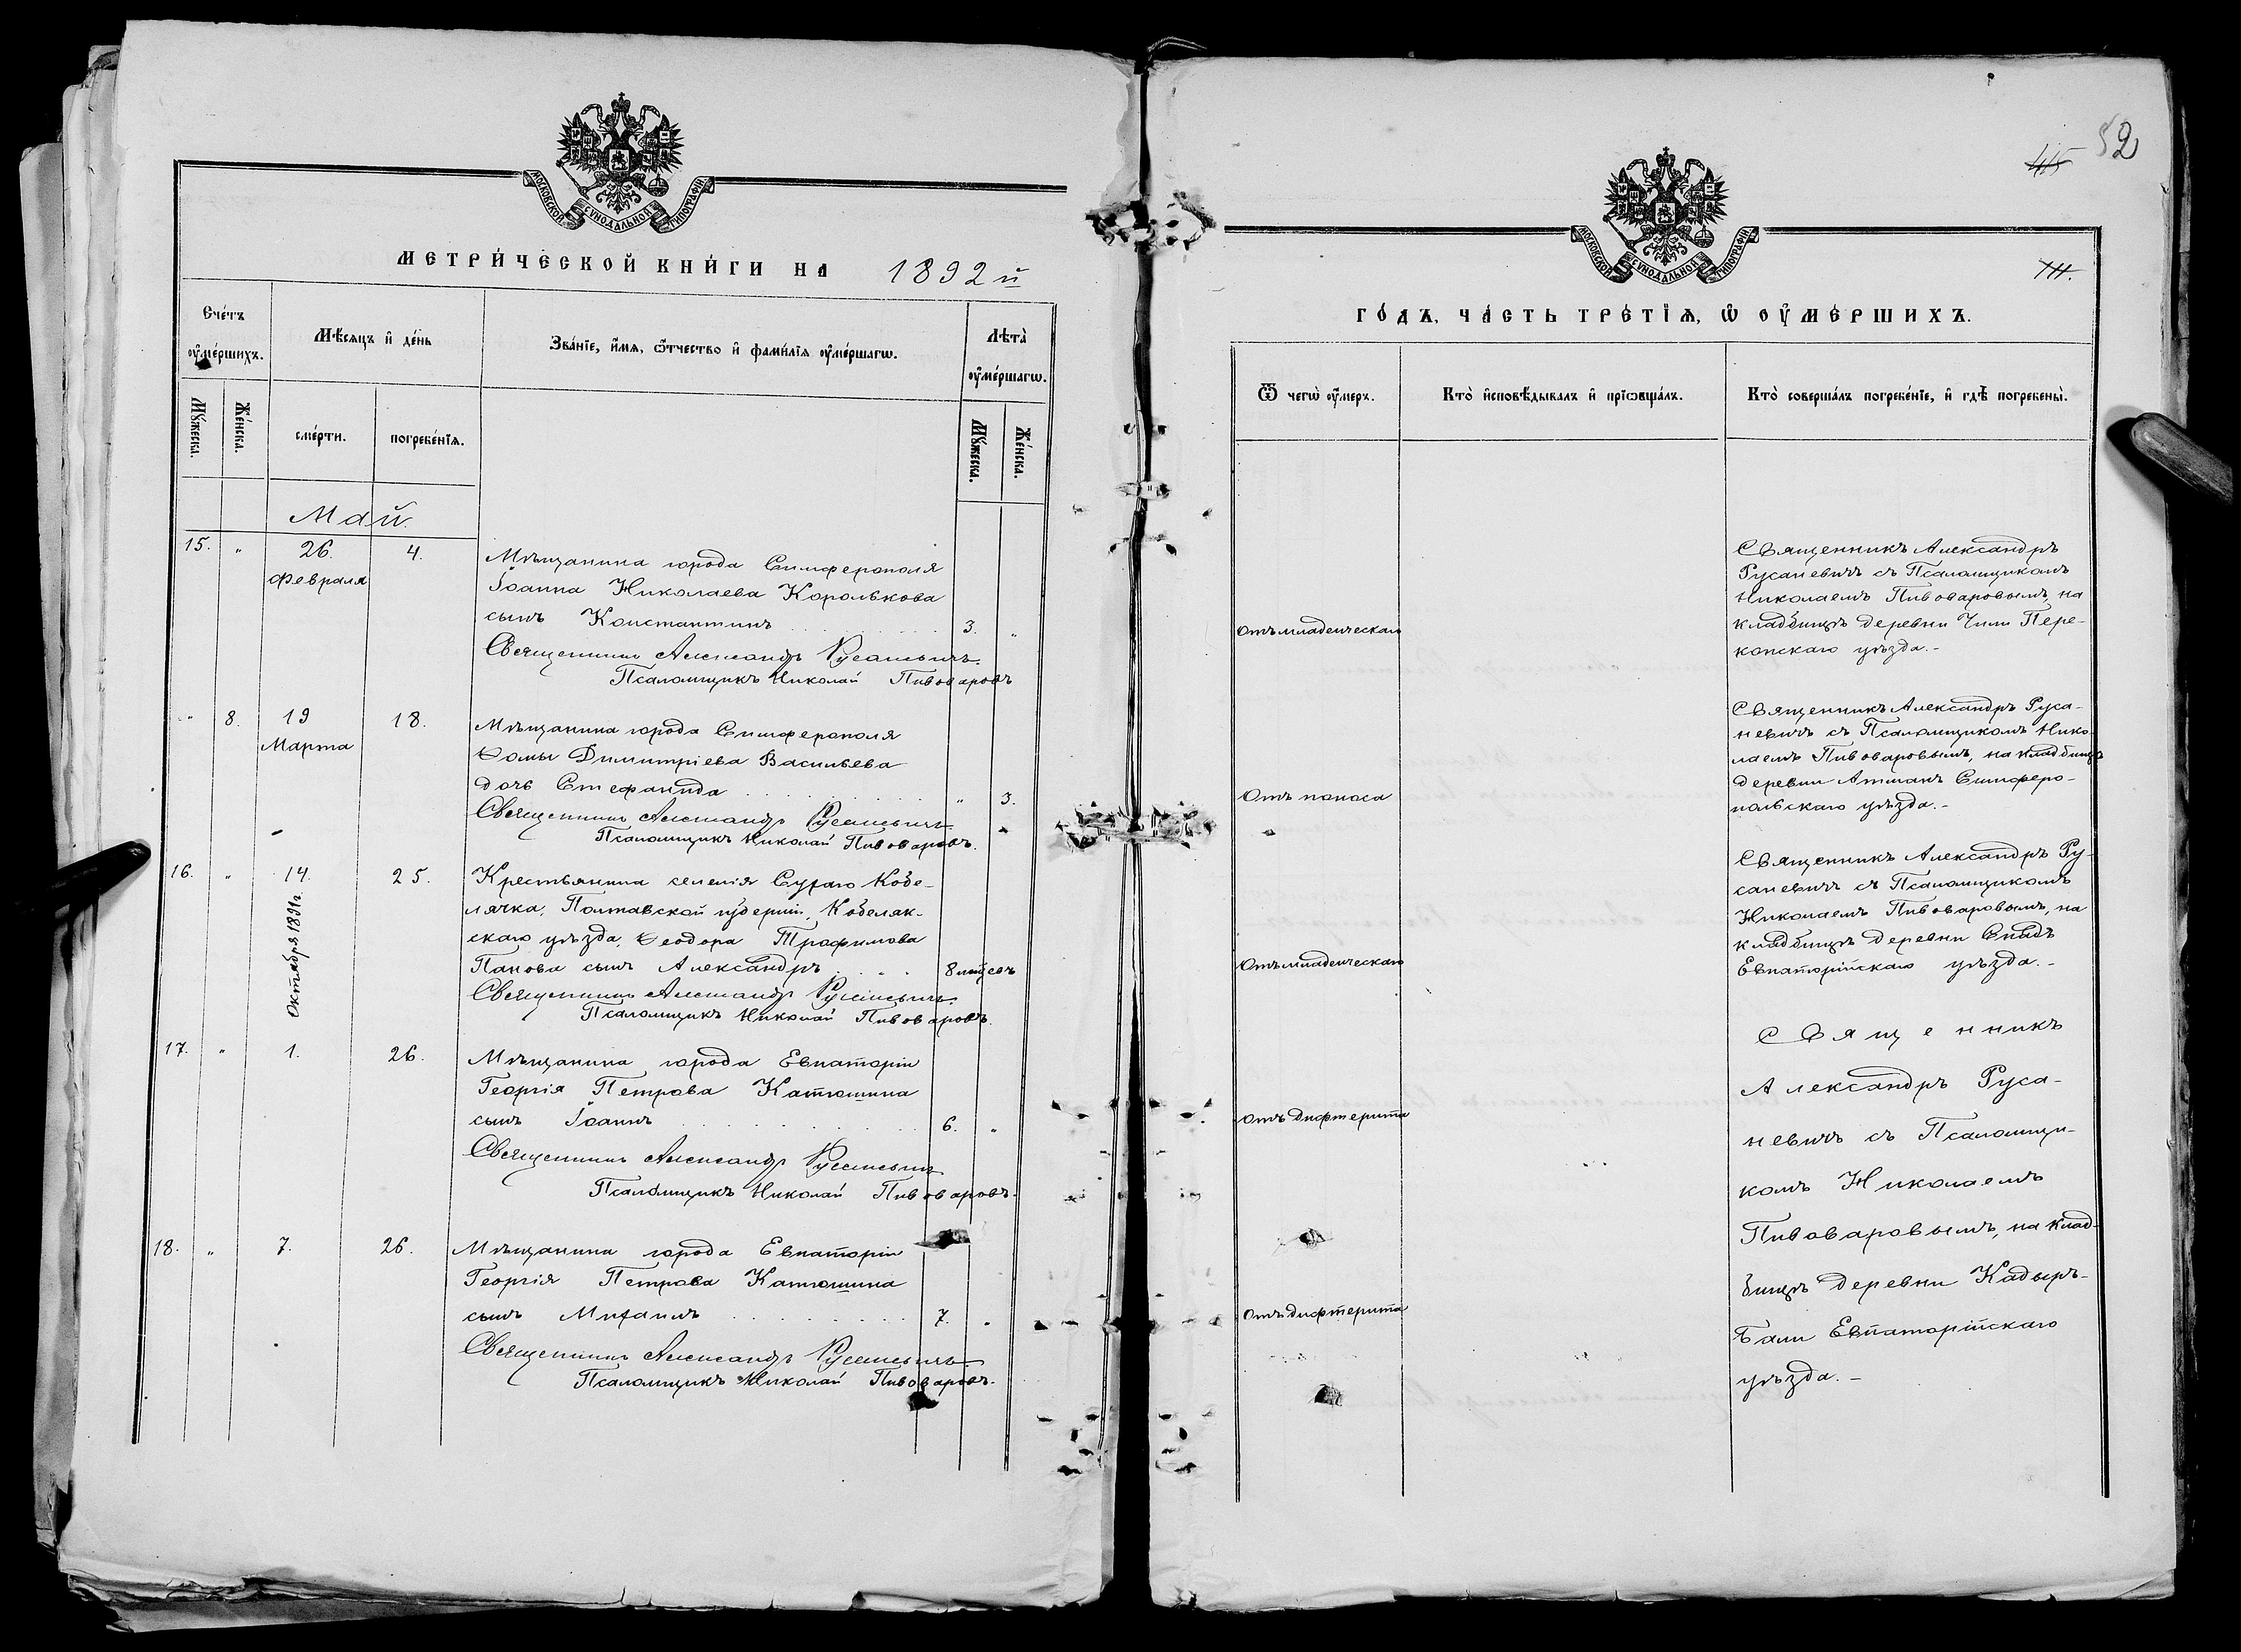 МОСКОВСКОЙ СѴНОДАЛЬНОЙ ТИПОГРАФІИ
МЕТРИ́ЧЕСКОЙ КНИ́ГИ НА 1892 й
Сче́тъ ѹ҆ме́ршихъ.
Мѣ́сяцъ и҆ де́нь
Зва́нїе, и҆́мѧ, ѻ҆́тчество и҆ фами́лїѧ ѹ҆ме́ршагѡ.
Лѣта̀ ѹ҆ме́ршагѡ.
Мꙋ́жеска.
Же́нска.
сме́рти.
погребе́нїѧ.
Мꙋ́жеска.
Же́нска.
Май.
15. " 26. Февраля 4.
Мѣщанина города Симферополя
Іоанна Николаева Королькова
сынъ Константинъ 3. "
Священникъ Александръ Русаневичъ.
Псаломщикъ Николай Пивоваровъ
" 8. 19 Марта 18.
Мѣщанина города Симферополя
Ѳомы Димитріева Васильева
дочь Стефанида " 3.
Священникъ Александръ Русаневичъ
Псаломщикъ Николай Пивоваровъ.
16. " 14. Октября 1891 г. 25.
Крестьянина селенія Сухаго Кобе-
лячка, Полтавской губерніи, Кобеляк-
скаго уѣзда, Ѳеодора Трофимова
Панова сынъ Александръ 8 мѣсяцевъ
Священникъ Александръ Русаневичъ.
Псаломщикъ Николай Пивоваровъ.
17. " 1. 26.
Мѣщанина города Евпаторіи
Георгія Петрова Катюшина
сынъ Іоаннъ 6. "
Священникъ Александръ Русаневичъ
Псаломщикъ Николай Пивоваровъ.
18. " 7. 26.
Мѣщанина города Евпаторіи
Георгія Петрова Катюшина
сынъ Михаилъ 7. "
Священникъ Александръ Русаневичъ
Псаломщикъ Николай Пивоваровъ.
52
МОСКОВСКОЙ СѴНОДАЛЬНОЙ ТИПОГРАФІИ
ГО́ДЪ, ЧА́СТЬ ТРЕ́ТЇѦ, Ѡ҆ ОУ҆МЕ́РШИХЪ.
Ѿ чегѡ̀ ѹ҆́меръ.
Кто̀ и҆сповѣ́дывалъ и҆ прїѡбща́лъ.
Кто̀ соверша́лъ погребе́нїе, и҆ гдѣ̀ погребены̀.
Отъ младенческаго
Священникъ Александръ
Русаневичъ съ Псаломщикомъ
Николаемъ Пивоваровымъ, на
кладбищѣ деревни Чили Пере-
копскаго уѣзда.-
Отъ поноса
Священникъ Александръ Руса-
невичъ съ Псаломщикомъ Нико-
лаемъ Пивоваровымъ, на кладбищѣ
деревни Атманъ Симферо-
польскаго уѣзда.-
Отъ младенческаго
Священникъ Александръ Ру-
саневичъ съ Псаломщикомъ
Николаемъ Пивоваровымъ, на
кладбищѣ деревни
Евпаторійскаго уѣзда.-
Отъ дифтерита
Отъ дифтерита
Священникъ
Александръ Руса-
невичъ съ Псаломщи-
комъ Николаемъ
Пивоваровымъ, на клад-
бищѣ деревни Кадыръ-
Бали Евпаторійскаго
уѣзда.-